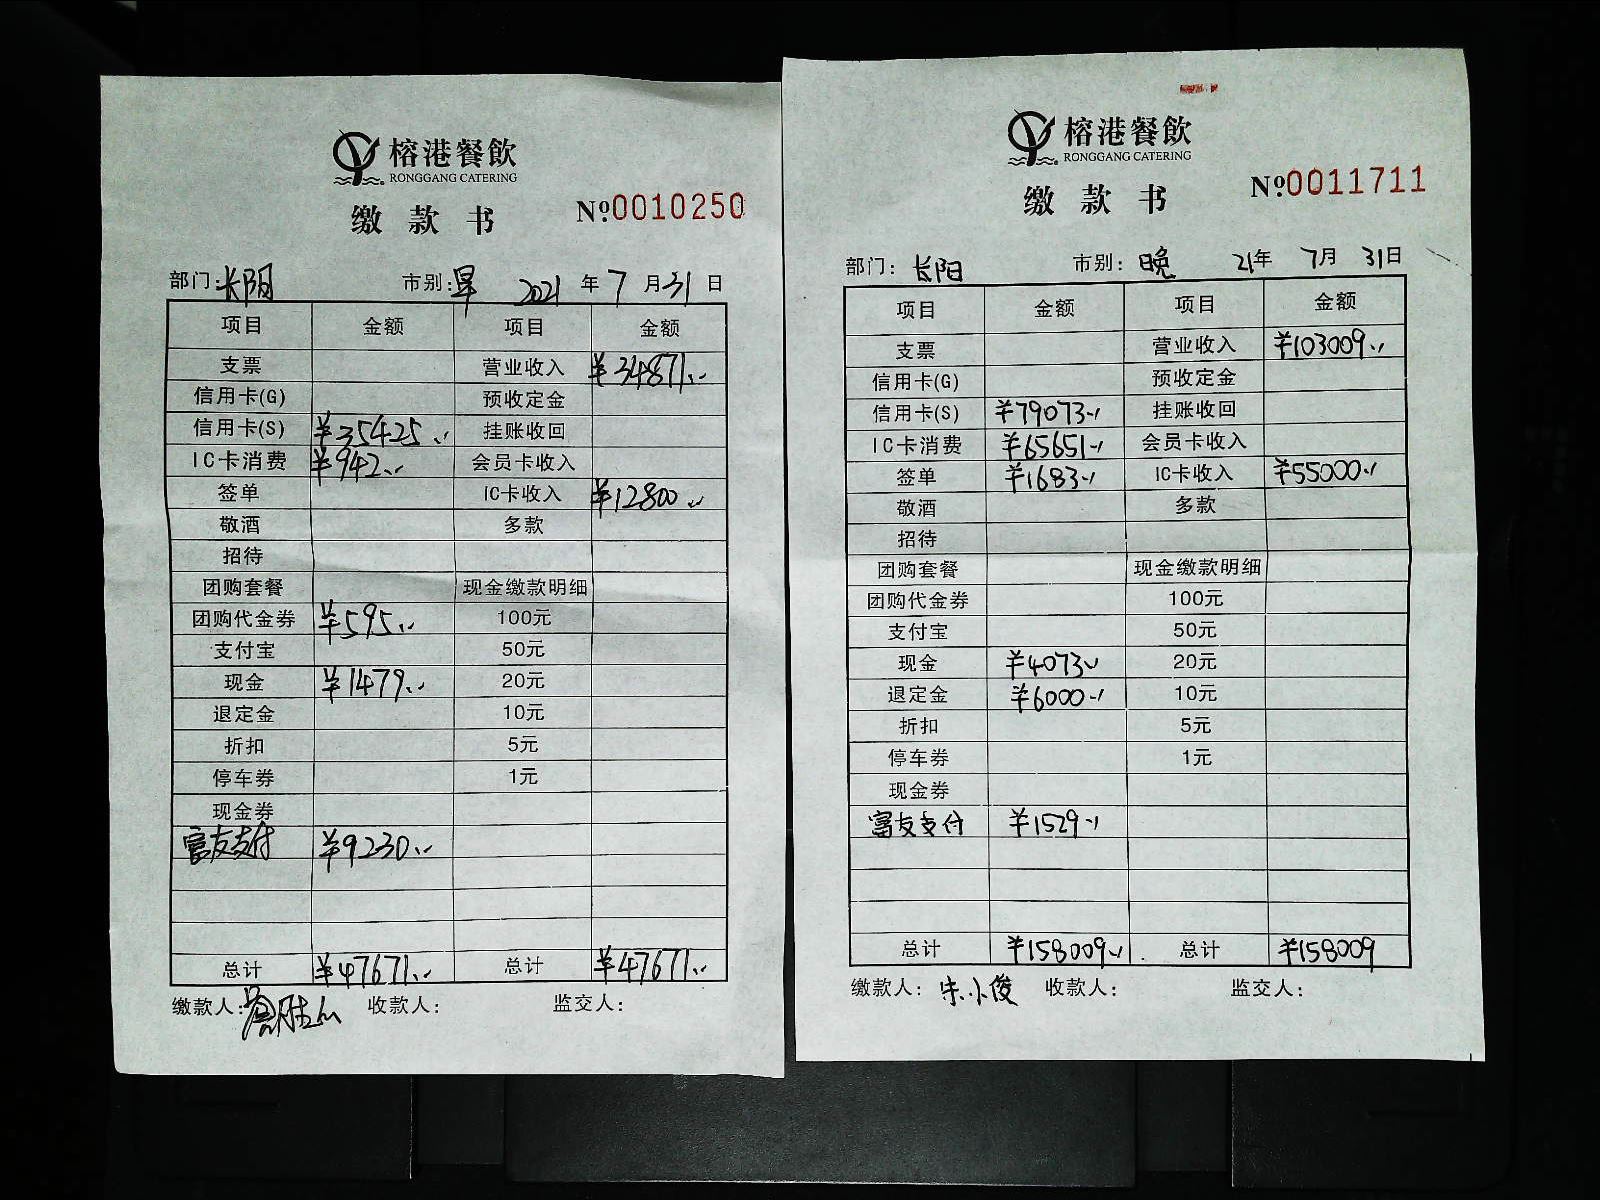 榕港餐飲
RONGGANG CATERING
缴款书 №0010250
部门:长阳 市别:早 2021年7月31日
项目 金额 项目 金额
支票 营业收入 ¥34871.、
信用卡(G) 预收定金
信用卡(S) ¥35425.、 挂账收回
IC卡消费 ¥942.、 会员卡收入
签单 IC卡收入 ¥12800.、
敬酒 多款
招待
团购套餐 现金缴款明细
团购代金券 ¥595.、 100元
支付宝 50元
现金 ¥1479.、 20元
退定金 10元
折扣 5元
停车券 1元
现金券
富友支付 ¥9230.、
总计 ¥47671.、 总计 ¥47671.、
缴款人: 收款人: 监交人:
榕港餐飲
RONGGANG CATERING
缴款书 №0011711
部门:长阳 市别:晚 21年7月31日
项目 金额 项目 金额
支票 营业收入 ¥103009.、
信用卡(G) 预收定金
信用卡(S) ¥79073.、 挂账收回
IC卡消费 ¥65651.、 会员卡收入
签单 ¥1683.、 IC卡收入 ¥55000.、
敬酒 多款
招待
团购套餐 现金缴款明细
团购代金券 100元
支付宝 50元
现金 ¥4073.、 20元
退定金 ¥6000.、 10元
折扣 5元
停车券 1元
现金券
富友支付 ¥1529.、
总计 ¥158009.、 总计 ¥158009
缴款人:宋小俊 收款人: 监交人: